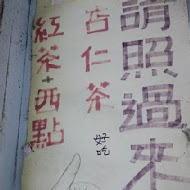 請照過來
杏仁茶
好吃
紅茶+西點